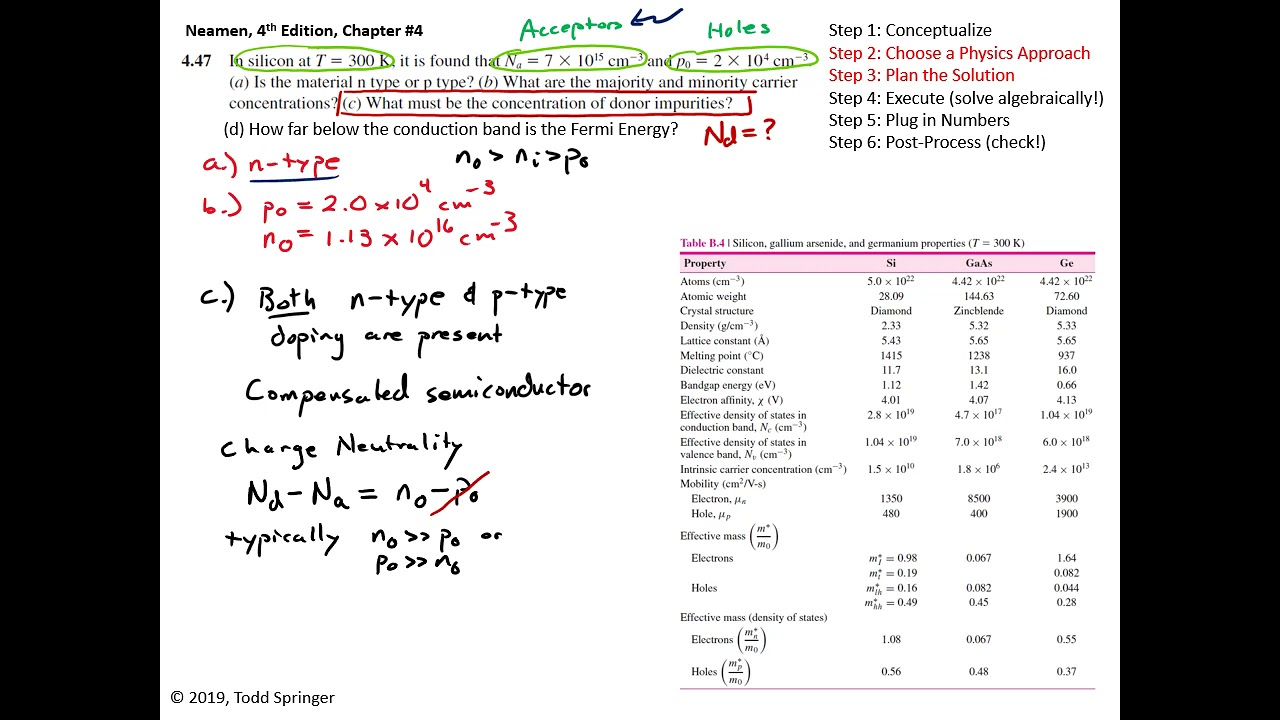 Neamen, 4th Edition, Chapter #4
Acceptors
Holes
4.47 In silicon at T = 300 K, it is found that Na = 7 × 10^15 cm^−3 and p0 = 2 × 10^4 cm^−3.
(a) Is the material n type or p type? (b) What are the majority and minority carrier
concentrations? (c) What must be the concentration of donor impurities?
(d) How far below the conduction band is the Fermi Energy?
Nd = ?
Step 1: Conceptualize
Step 2: Choose a Physics Approach
Step 3: Plan the Solution
Step 4: Execute (solve algebraically!)
Step 5: Plug in Numbers
Step 6: Post-Process (check!)
a.) n-type
n0 > ni > p0
b.) p0 = 2.0 x 10^4 cm^-3
n0 = 1.13 x 10^16 cm^-3
c.) Both n-type & p-type
doping are present
Compensated semiconductor
Charge Neutrality
Nd - Na = n0 - p0
typically n0 >> p0 or
p0 >> n0
Table B.4 | Silicon, gallium arsenide, and germanium properties (T = 300 K)
Property Si GaAs Ge
Atoms (cm^−3) 5.0 × 10^22 4.42 × 10^22 4.42 × 10^22
Atomic weight 28.09 144.63 72.60
Crystal structure Diamond Zincblende Diamond
Density (g/cm^−3) 2.33 5.32 5.33
Lattice constant (Å) 5.43 5.65 5.65
Melting point (°C) 1415 1238 937
Dielectric constant 11.7 13.1 16.0
Bandgap energy (eV) 1.12 1.42 0.66
Electron affinity, χ (V) 4.01 4.07 4.13
Effective density of states in 2.8 × 10^19 4.7 × 10^17 1.04 × 10^19
conduction band, Nc (cm^−3)
Effective density of states in 1.04 × 10^19 7.0 × 10^18 6.0 × 10^18
valence band, Nv (cm^−3)
Intrinsic carrier concentration (cm^−3) 1.5 × 10^10 1.8 × 10^6 2.4 × 10^13
Mobility (cm^2/V-s)
Electron, μn 1350 8500 3900
Hole, μp 480 400 1900
Effective mass (m*/m0)
Electrons m*l = 0.98 0.067 1.64
m*t = 0.19 0.082
Holes m*lh = 0.16 0.082 0.044
m*hh = 0.49 0.45 0.28
Effective mass (density of states)
Electrons (m*n/m0) 1.08 0.067 0.55
Holes (m*p/m0) 0.56 0.48 0.37
© 2019, Todd Springer